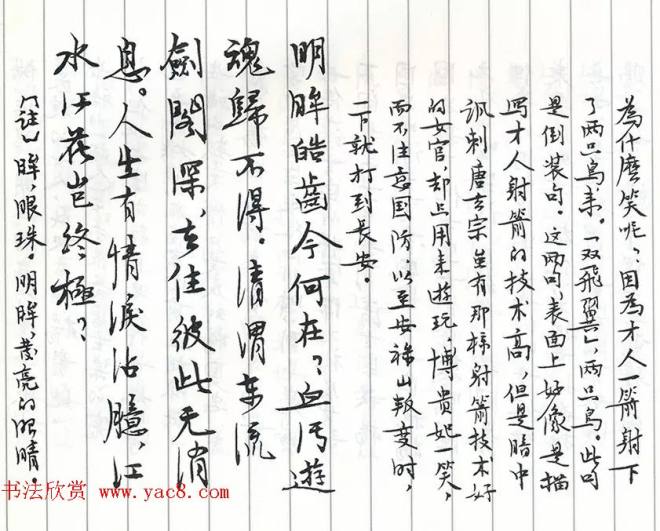 為什麼笑呢？因為才人一箭射下
了两只鸟来。「双飛翼」，两只鸟。此句
是倒装句。这两句，表面上好像是描
写才人射箭的技术高，但是暗中
讽刺唐玄宗虽有那样射箭技术好
的女官，却占用来遊玩，博贵妃一笑，
而不注意国防以至安祿山叛变时，
一下就打到長安。
明眸皓齒今何在？血污遊
魂歸不得。清渭东流
劍閣深，去住彼此无消
息。人生有情淚沾臆，江
水江花岂终極？
【註】眸，眼珠。明眸，黑亮的眼睛。
书法欣赏 www.yac8.com